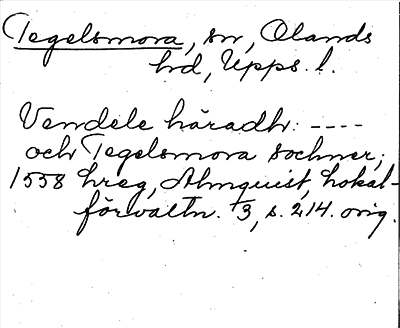 Tegelsmora, sn, Olands
hrd, Upps. l.
Vendele häradh: ----
och Tegelsmora sochner,
1558 hreg, Almquist, Lokal-
förvaltn. 1/3, s. 214. orig.